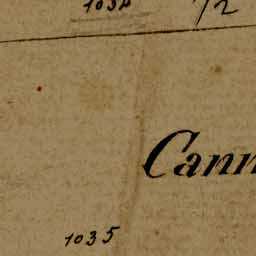 1034 1/2
Cann
1035